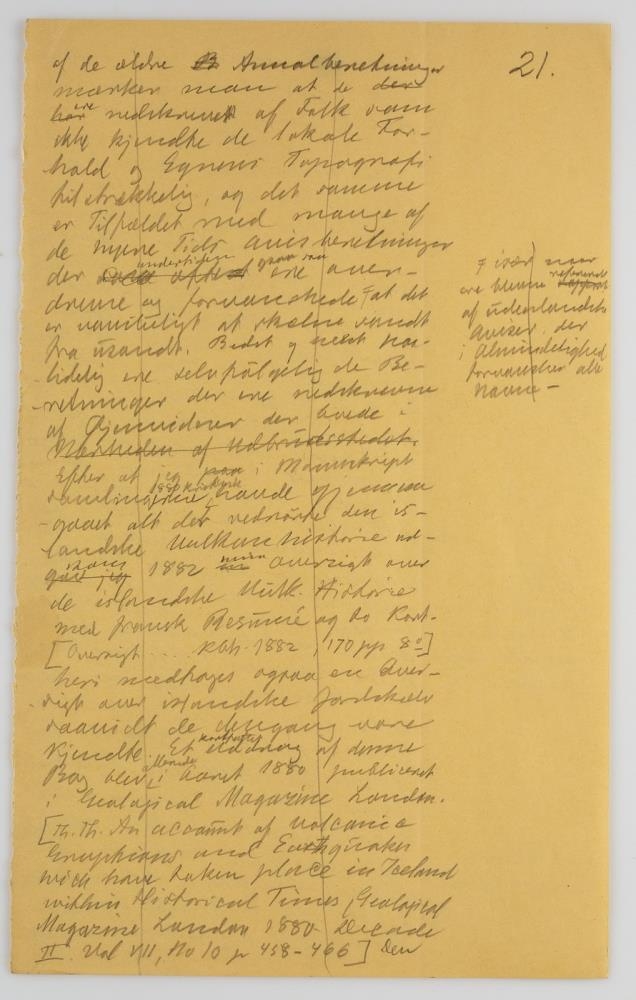 21.
af de ældre Annalberetninger
mærker man at de
ere nedskrevet af Folk som
ikke kjendte de lokale For-
hold og Egnens Topografi
tilstrækkelig, og det samme
er Tilfældet med mange af
de nyere Tids avisberetninger
undertiden
der ere over-
drevne og forvanskede at det
er vanskeligt at skælne sandt
fra usandt. Bedst og mest paa-
lidelig ere selvfølgelig de Be-
retninger der ere nedskrevne
af Øjenvidner der boede i
Nærheden af Udbrudsstedet.
især naar
ere blevne refererede
af udenlandske
Aviser der
i Almindelighed
forvansker alle
Navne –
Efter at jeg i Manuskript
1880
havde gjennem
gaaet alt der vedrørte den is-
landske Vulkanhistorie ud-
kom 1882 min oversigt over
de islandske Vulk. Historie
med fransk Resumé og to Kort.
[Oversigt ... Kbh. 1882, 170 pp 8º]
heri medtoges ogsaa en Over-
sigt over islandske Jordskælv
saavidt de dengang vare
kjendte. Et kortfattet Uddrag af denne
Bog blev allerede i Aaret 1880 publiceret
i Geological Magazine London.
[Th. Th. An account of volcanic
Eruptions and Earthquakes
wich have taken place in Iceland
within Historical Times (Geological
Magazine London 1880. Decade
II. Vol VII, No 10 p 458–466] Den